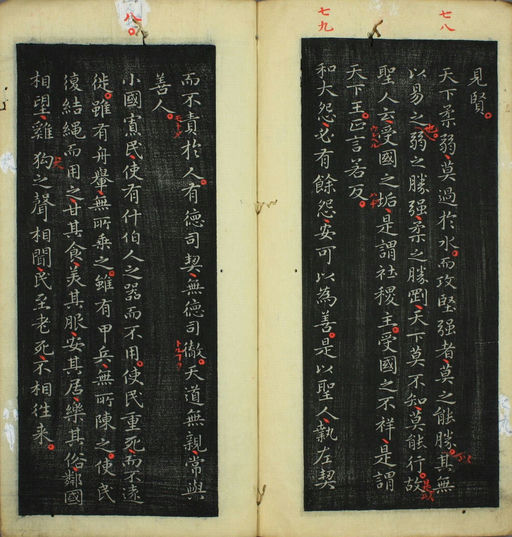 七八
見賢。
天下柔弱莫過於水。而攻堅强者莫之能勝。其無
以易之。弱之勝强。柔之勝剛。天下莫不知。莫能行。故
聖人云。受國之垢。是謂社稷主。受國之不祥。是謂
天下王。正言若反。
七九
和大怨必有餘怨。安可以為善。是以聖人執左契
而不責於人。有德司契。無德司徹。天道無親。常與
善人。
八〇
小國寡民。使有什伯人之器而不用。使民重死而不遠
徙。雖有舟轝無所乘之。雖有甲兵無所陳之。使民
復結繩而用之。甘其食。美其服。安其居。樂其俗。鄰國
相望。雞狗之聲相聞。民至老死。不相往来。